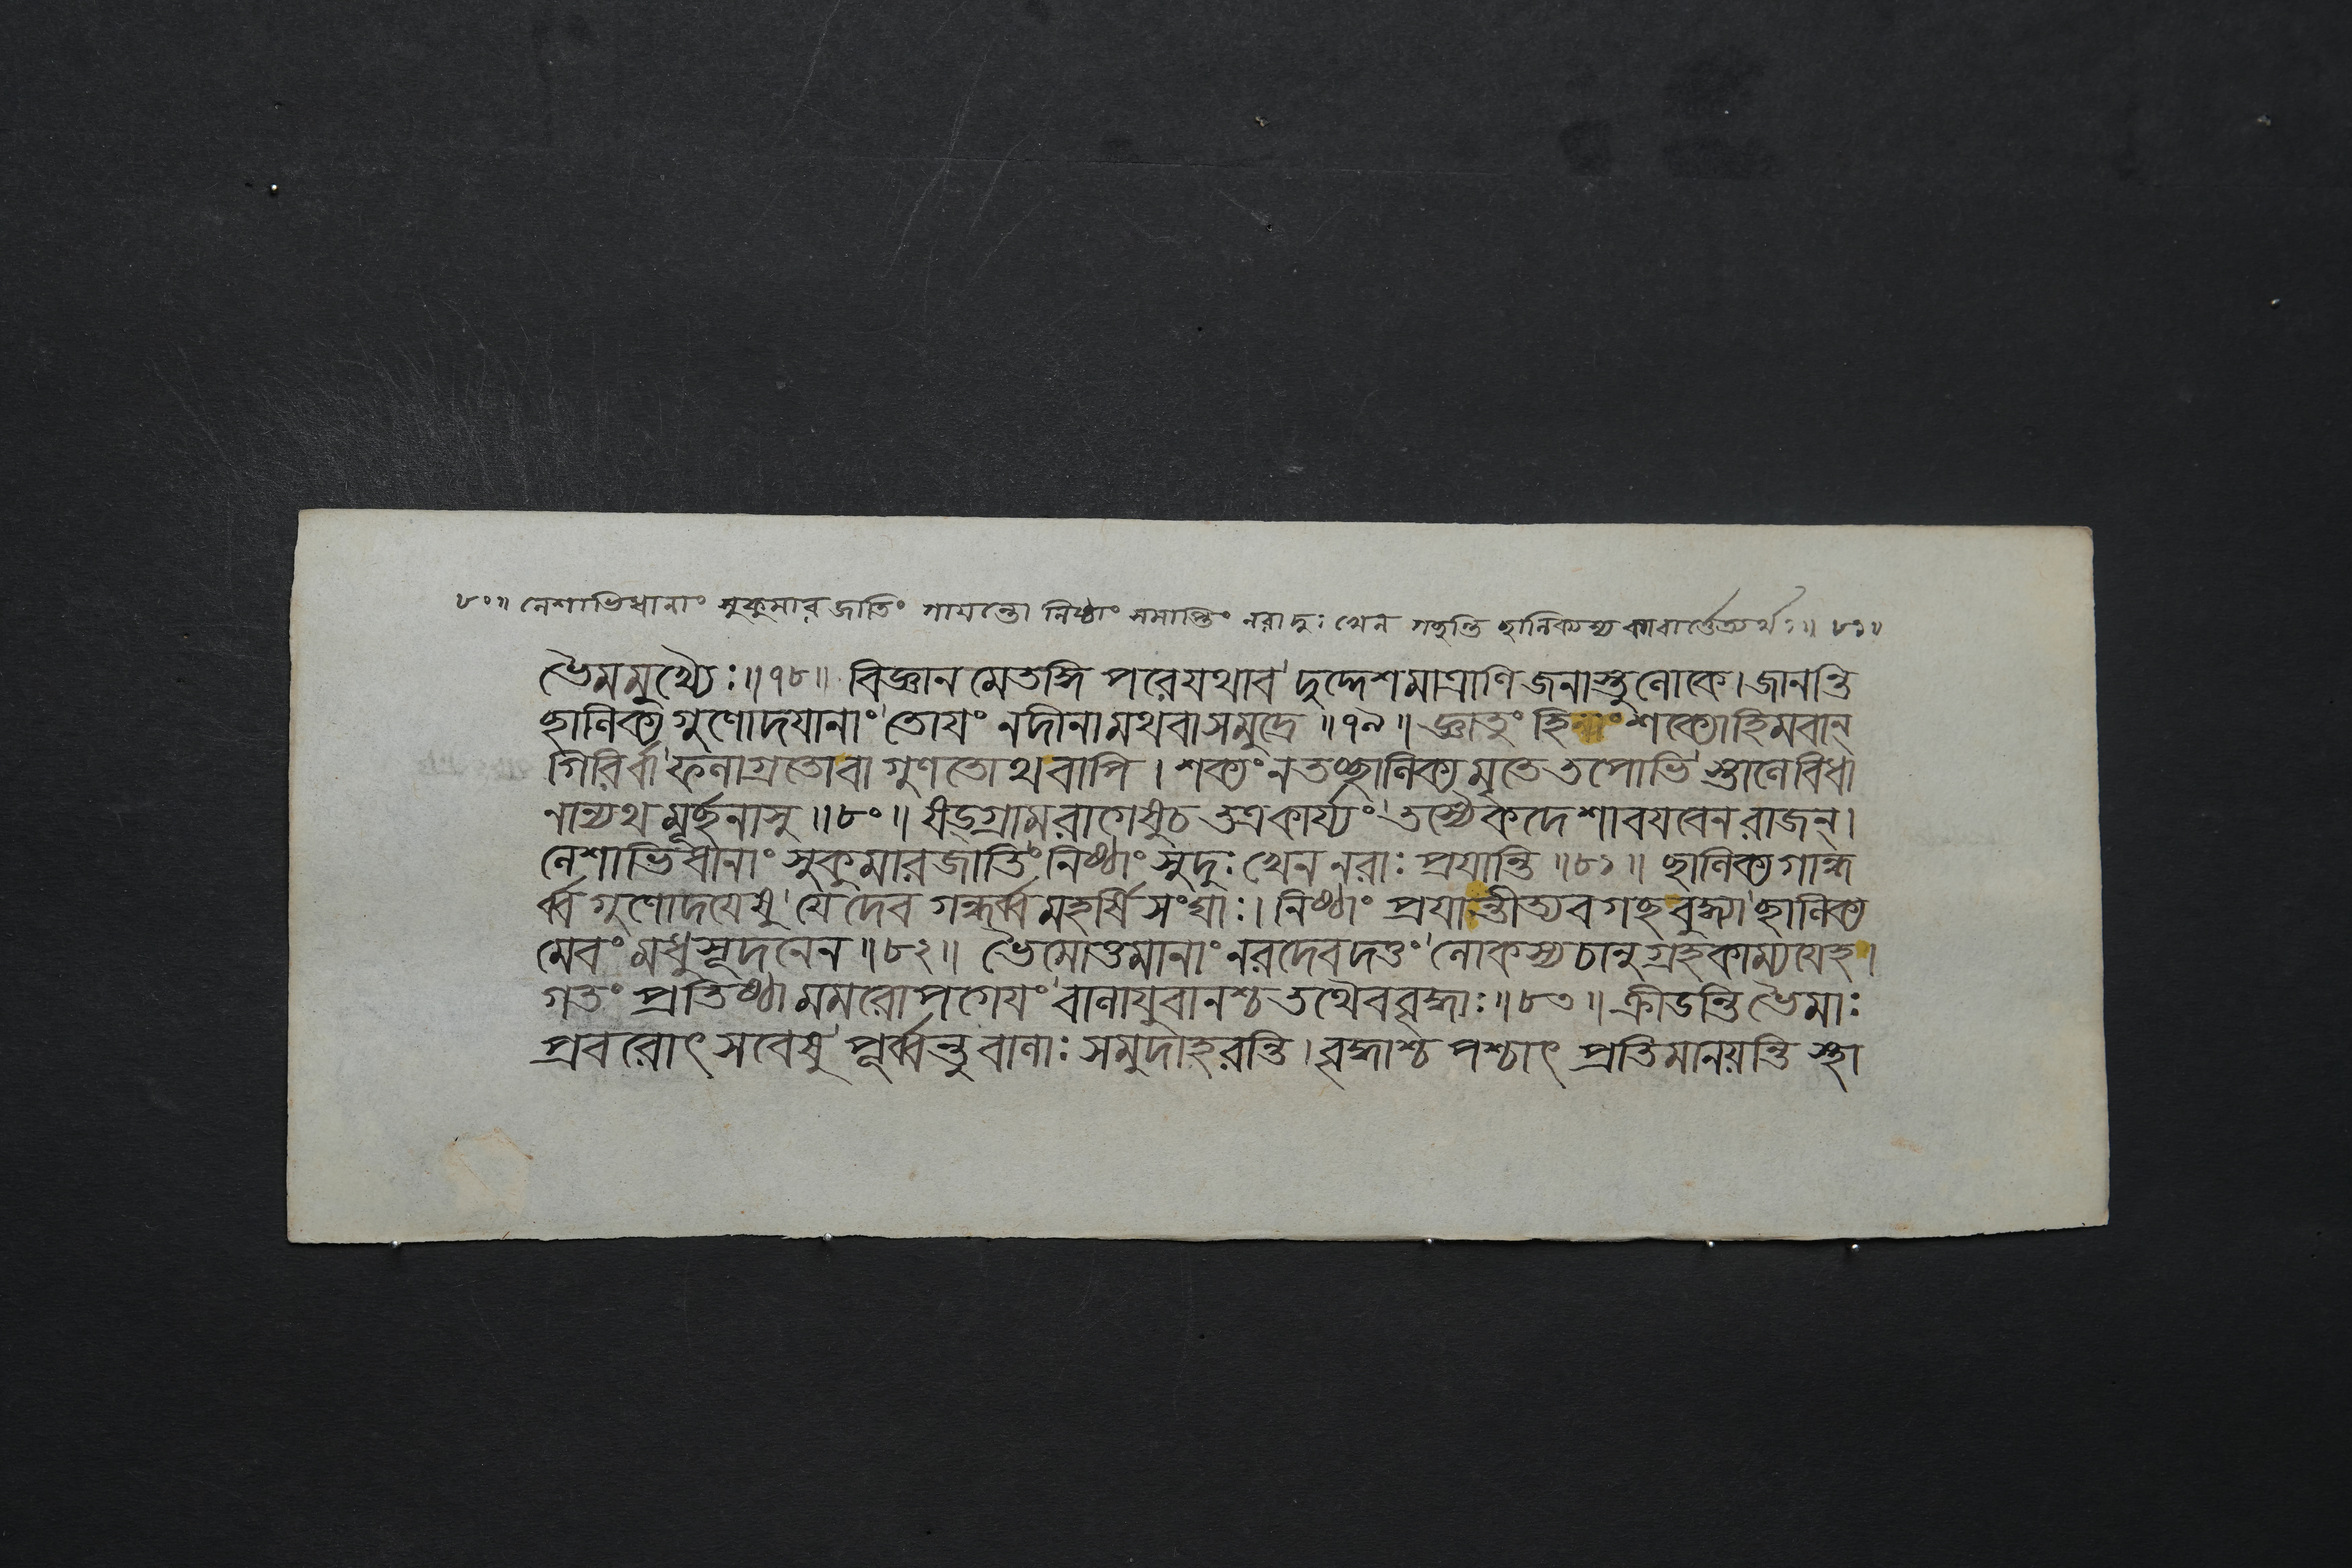 ৮০॥ লেশাভিধানাং সুকুমারজাতিং গায়ন্তো নিষ্ঠাং সমাপ্তিং নরাদুঃখেন গছন্তি ছালিক্যস্য কাধার্ত্তেত্যর্থঃ॥ ৮১॥
ভৈমমুখ্যৈঃ॥৭৮॥ বিজ্ঞানমেতদ্ধি পরেযথাব'দুদ্দেশমাত্রাণি জনাস্তু লোকে। জানন্তি
ছালিক্য গুণোদযানাং'তোযং নদীনামথবাসমুদ্রে॥৭৯॥ জ্ঞাতুং হি শক্যোহিমবান্
গিরির্বা'ফলাগ্রতোবা গুণতোথবাপি। শক্যং নতচ্ছালিক্যমৃতে তপোভি'স্তালেবিধা
নান্যথ মূর্চ্ছনাসু॥৮০॥ ষড্গ্রামরাগেষুচ তত্রকার্য্যং'তস্যৈকদেশাবযবেন রাজন্।
লেশাভিধানাং সুকুমারজাতিং'নিষ্ঠাং সুদুঃখেন নরাঃ প্রযান্তি॥৮১॥ ছালিক্যগান্ধ
র্ব্ব গুণোদযেষু'যে দেব গন্ধর্ব্ব মহর্ষি সংঘাঃ। নিষ্ঠাং প্রযান্তীত্যবগছ বুদ্ধ্যা'ছালিক্য
মেবং মধুসূদনেন॥৮২॥ ভৈমোত্তমানাং নরদেবদত্তং'লোকস্য চানুগ্রহকাম্যযেহ।
গতং প্রতিষ্ঠামমরোপগেযং'বালাযুবানশ্চ তথৈববৃদ্ধাঃ॥৮৩॥ ক্রীডন্তি ভৈমাঃ
প্রবরোৎসবেষু'পূর্ব্বন্তু বালাঃ সমুদাহরন্তি। বৃদ্ধাশ্চ পশ্চাৎ প্রতিমানয়ন্তি স্থা